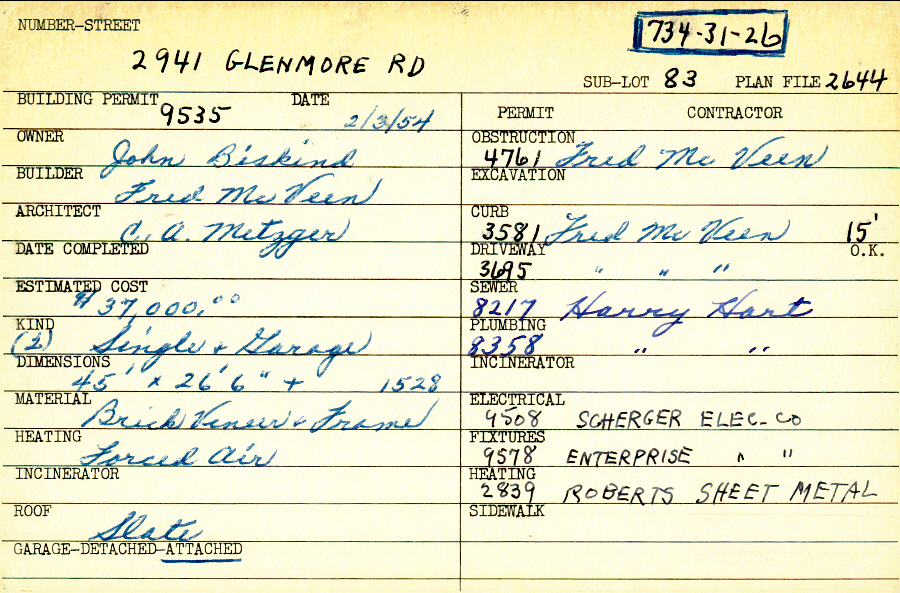 NUMBER-STREET
734-31-26
2941 GLENMORE RD
SUB-LOT 83 PLAN FILE 2644
BUILDING PERMIT 9535 DATE 2/3/54
PERMIT CONTRACTOR
OWNER John Biskind
OBSTRUCTION 4761 Fred Mc Veen
BUILDER Fred Mc Veen
EXCAVATION
ARCHITECT C. A. Metzger
CURB 3581 Fred Mc Veen 15' O.K.
DATE COMPLETED
DRIVEWAY 3695 " " "
ESTIMATED COST $37,000.00
SEWER 8217 Harry Hart
KIND (2) Single + Garage
PLUMBING 8358 " "
DIMENSIONS 45' x 26' 6" + 1528
INCINERATOR
MATERIAL Brick Veneer + Frame
ELECTRICAL 9508 SCHERGER ELEC-CO
HEATING Forced Air
FIXTURES 9578 ENTERPRISE " "
INCINERATOR
HEATING 2839 ROBERTS SHEET METAL
ROOF Slate
SIDEWALK
GARAGE-DETACHED-ATTACHED